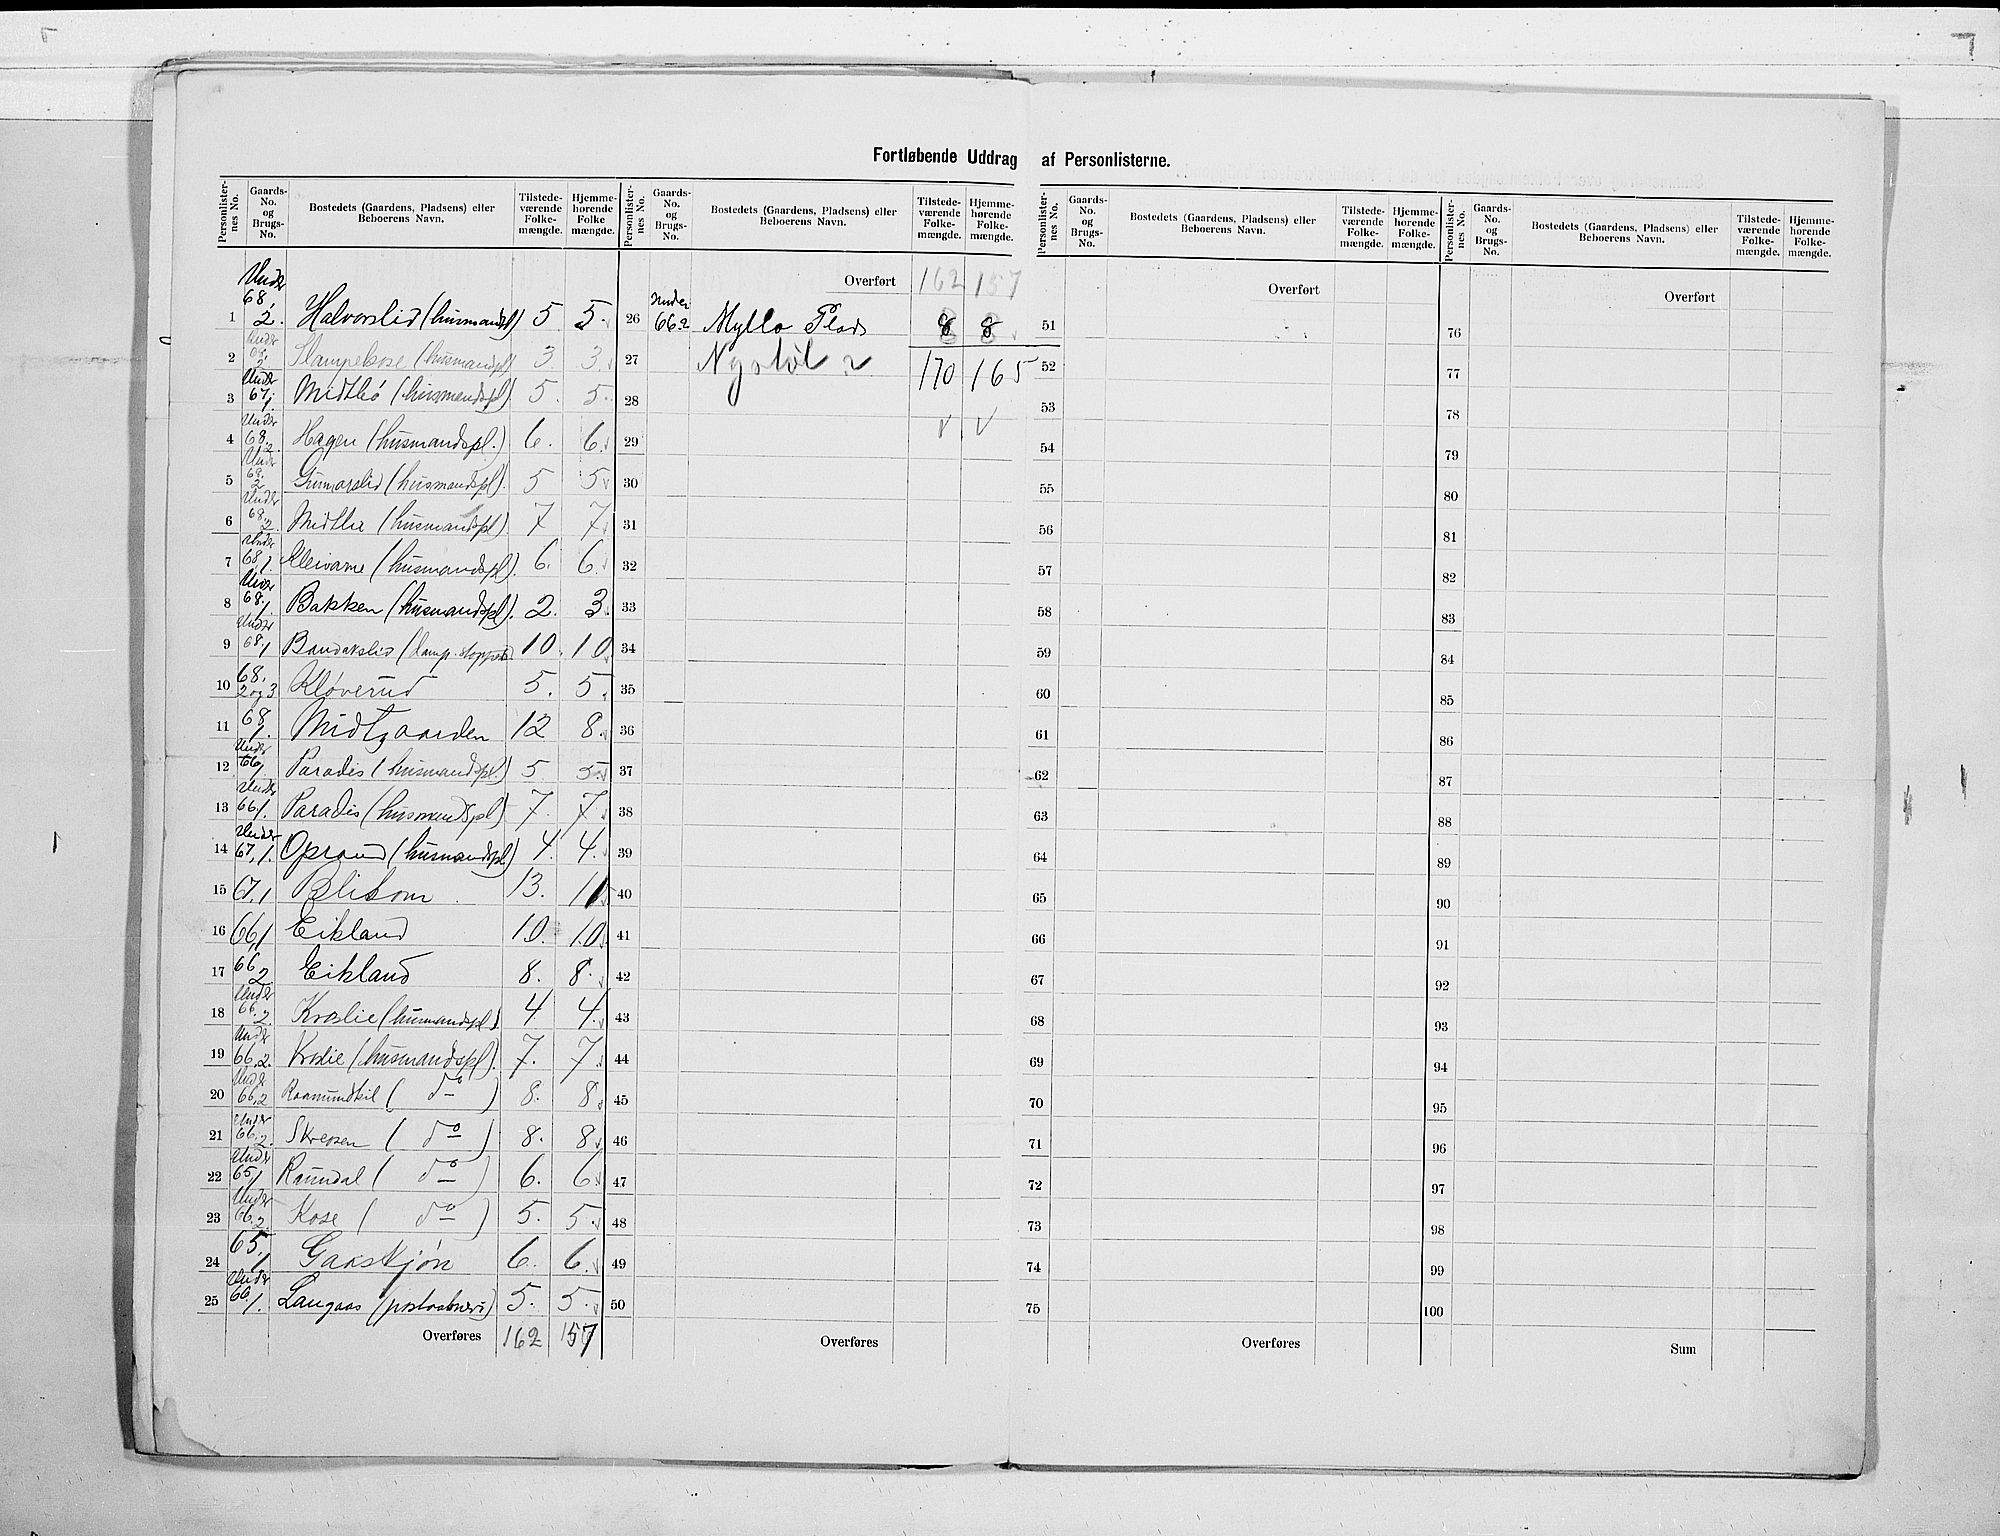 Fortløbende Uddrag af Personlisterne.
Personlister-nes No. Gaards-No. og Brugs-No. Bostedets (Gaardens, Pladsens) eller Beboerens Navn. Tilstede-værende Folke-mængde. Hjemme-hørende Folke mængde.
Under
1 68, 2. Halvorslid (husmandspl) 5 5.
2 Under 68, Stampekose (husmandspl) 3. 3.
3 Under 67, 1. Midtbö (husmandspl). 5. 5.
4 Under 68, 2. Hagen (husmandspl.) 6. 6.
5 Under 68, 2 Gunnarslid (husmandspl). 5 5
6 Under 68, 2. Midtlie (husmandspl). 7 7
7 Under 68, 1. Kleivane (husmandspl). 6. 6.
8 Under 68, 1. Bakken (husmandspl). 2. 3.
9 Under 68, 1 Bandakslid (damp.stopped) 10. 10
10 68, 2 og 3 Kløverud 5. 5.
11 68, 1. Midtgaarden 12 8.
12 Under 66, 1 Paradis (husmandspl.) 5. 5.
13 Under 66, 1. Paradis (husmandspl) 7. 7.
14 Under 67, 1. Oprand (husmandspl) 4. 4.
15 67,1 13. 11
16 66,1 Eikland 10. 10.
17 66, 2 Eikland 8. 8.
18 Under 66, 2. Kroslie (husmandspl). 4 4.
19 Under 66, 2. Kroslie (husmandspl). 7. 7.
20 Under 66,2 ( do ) 8. 8
21 Under 66, 2. Skreosen ( do ) 8. 8
22 Under 65,1 Raundal ( do ) 6. 6
23 Under 66, 2. Kose ( do ) 5. 5.
24 65, 1 Gaastjøn 6. 6.
25 Under 66, 1. Langaas (postaabneri) 5. 5.
Overføres 162 157
Personlister-nes No. Gaards-No. og Brugs-No. Bostedets (Gaardens, Pladsens) eller Beboerens Navn. Tilstede-værende Folke-mængde. Hjemme-hørende Folke-mængde.
Overført 162 157
26 under 66,2 Mylla Plads 8 8
27 Nystøl 2 170 165
28
29
30
31
32
33
34
35
36
37
38
39
40
41
42
43
44
45
46
47
48
49
50
Overføres
Personlister-nes No. Gaards-No. og Brugs-No. Bostedets (Gaardens, Pladsens) eller Beboerens Navn. Tilstede-værende Folke-mængde. Hjemme-hørende Folke-mængde.
Overført
51
52
53
54
55
56
57
58
59
60
61
62
63
64
65
66
67
68
69
70
71
72
73
74
75
Overføres
Personlister-nes No. Gaards-No. og Brugs-No. Bostedets (Gaardens, Pladsens) eller Beboerens Navn. Tilstede-værende Folke-mængde. Hjemme-hørende Folke-mængde.
Overført
76
77
78
79
80
81
82
83
84
85
86
87
88
89
90
91
92
93
94
95
96
97
98
99
100
Sum